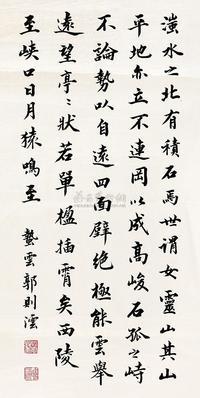 滱水之北有積石焉世謂女靈山其山
平地亦立不連岡以成高峻石孤之峙
不論勢以自遠四面壁絕極能雲舉
遠望亭亭狀若單楹插霄矣西陵
至峽口日月猿鳴至 蟄雲郭則澐